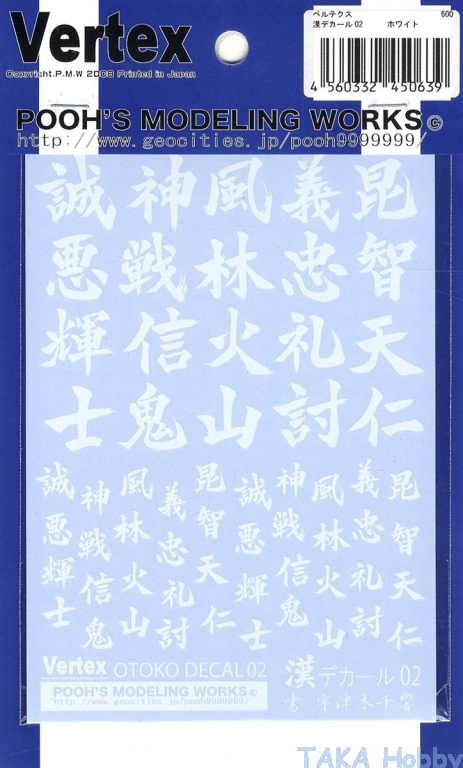 Vertex
Copyright.P.M.W 2008 Printed in Japan
ベルテクス 600
漢デカール 02 ホワイト
4 560332 450639
POOH'S MODELING WORKS©
http://www.geocities.jp/pooh9999999/
誠 神 風 義 昆
悪 戦 林 忠 智
輝 信 火 礼 天
士 鬼 山 討 仁
誠 神 風 義 昆 誠 神 風 義 昆
悪 戦 林 忠 智 悪 戦 林 忠 智
輝 信 火 礼 天 輝 信 火 礼 天
士 鬼 山 討 仁 士 鬼 山 討 仁
Vertex OTOKO DECAL 02
POOH'S MODELING WORKS©
http://www.geocities.jp/pooh9999999/
漢デカール 02
書 宇津木千響
TAKA Hobby